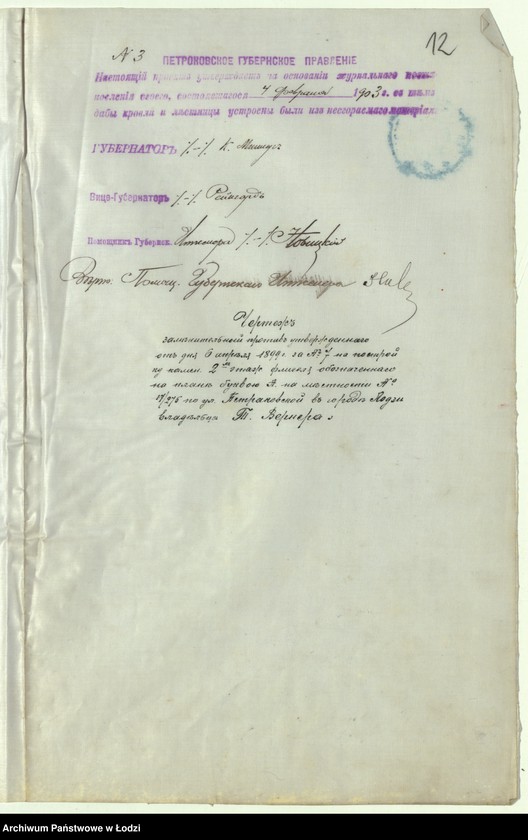 № 3
12
ПЕТРОКОВСКОЕ ГУБЕРНСКОЕ ПРАВЛЕНІЕ
Настоящій проектъ утверждаетъ на основаніи журнальнаго поста-
новленія своего, состоявшагося 4 февраля 1903 г. съ тѣмъ
дабы кровля и лѣстницы устроены были изъ несгораемаго матеріала.
ГУБЕРНАТОРЪ /-/ К. Миллеръ
Вице-Губернаторъ /-/
Помощникъ Губернск. Инженера /-/ Новицкій
Вѣрно. Помощ. Губернскаго Инженера
Чертежъ
замѣнительный противъ утвержденнаго
отъ дня 6 апрѣля 1899 г. за № 7 на постройку
камен. 2хъ этаж. флигеля обозначеннаго
на планѣ буквою А. на мѣстности №
17/275 по ул. Петроковской въ городѣ Лодзи
владѣльца Т. Вернера
Archiwum Państwowe w Łodzi